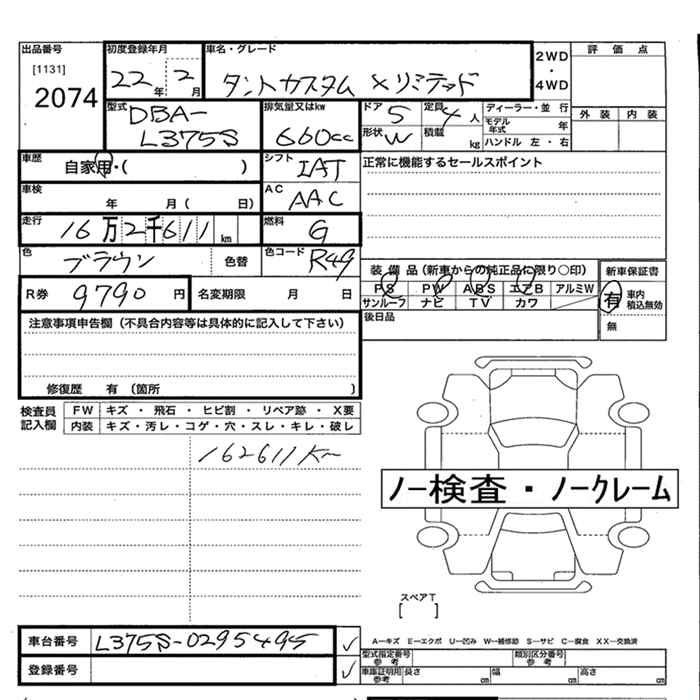 出品番号 初度登録年月 車名・グレード 2WD ・ 4WD 評価点
[1131] 2074 22年 2月 タントカスタム Xリミテッド
外装 内装
型式 DBA-L375S 排気量又はkw 660cc ドア 5 定員 4人 ディーラー・並行
モデル年式 年
形状 W 積載 kg ハンドル 左・右
車歴 自家用・( ) シフト IAT 正常に機能するセールスポイント
車検 年 月( 日) AC AAC
走行 16万2千611km 燃料 G
色 ブラウン 色替 色コード R49
装備品(新車からの純正品に限り〇印) 新車保証書
R券 9790円 名変期限 月 日 PS PW ABS エアB アルミW 有 車内積込無効
サンルーフ ナビ TV カワ 無
注意事項申告欄(不具合内容等は具体的に記入して下さい) 後日品
修復歴 有(箇所 )
検査員記入欄 FW キズ・飛石・ヒビ割・リペア跡・X要
内装 キズ・汚レ・コゲ・穴・スレ・キレ・破レ
162611K
ノー検査・ノークレーム
スペアT
[ ]
車台番号 L375S-0295495 ✓
A－キズ E－エクボ U－凹み W－補修跡 S－サビ C－腐食 XX－交換済
型式指定番号 参考 類別区分番号 参考
登録番号 ✓ 車庫証明用参考 長さ cm 幅 cm 高さ cm